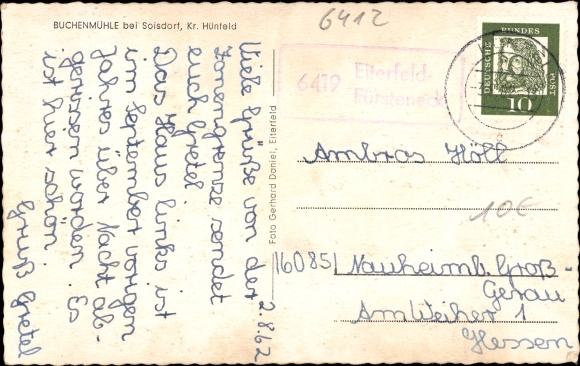 BUCHENMÜHLE bei Soisdorf, Kr. Hünfeld
Viele Grüße von der
Zonengrenze sendet
euch Gretel.
Das Haus links ist
im September vorigen
Jahres über Nacht ab-
gerissen worden. Es
ist hier schön.
Gruß Gretel
2.8.62
Foto Gerhard Daniel, Eiterfeld
6412
6419 Eiterfeld-
Fürsteneck
DEUTSCHE BUNDES POST
10
Ambros Höll
10€
16085 Nauheim b. Groß-
Gerau
Am Weiher 1
Hessen